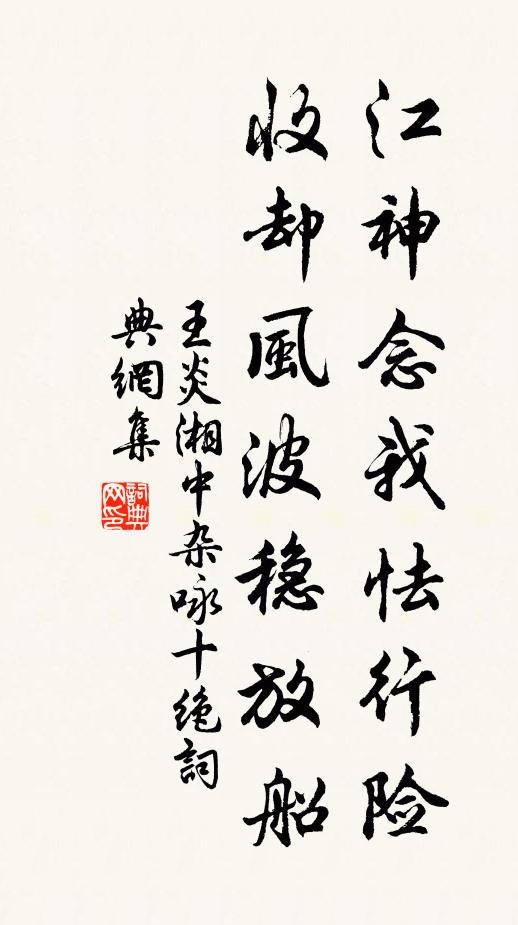 江神念我怯行险
收却風波稳放船
王炎湘中杂咏十绝詞
典網集
詞典网印